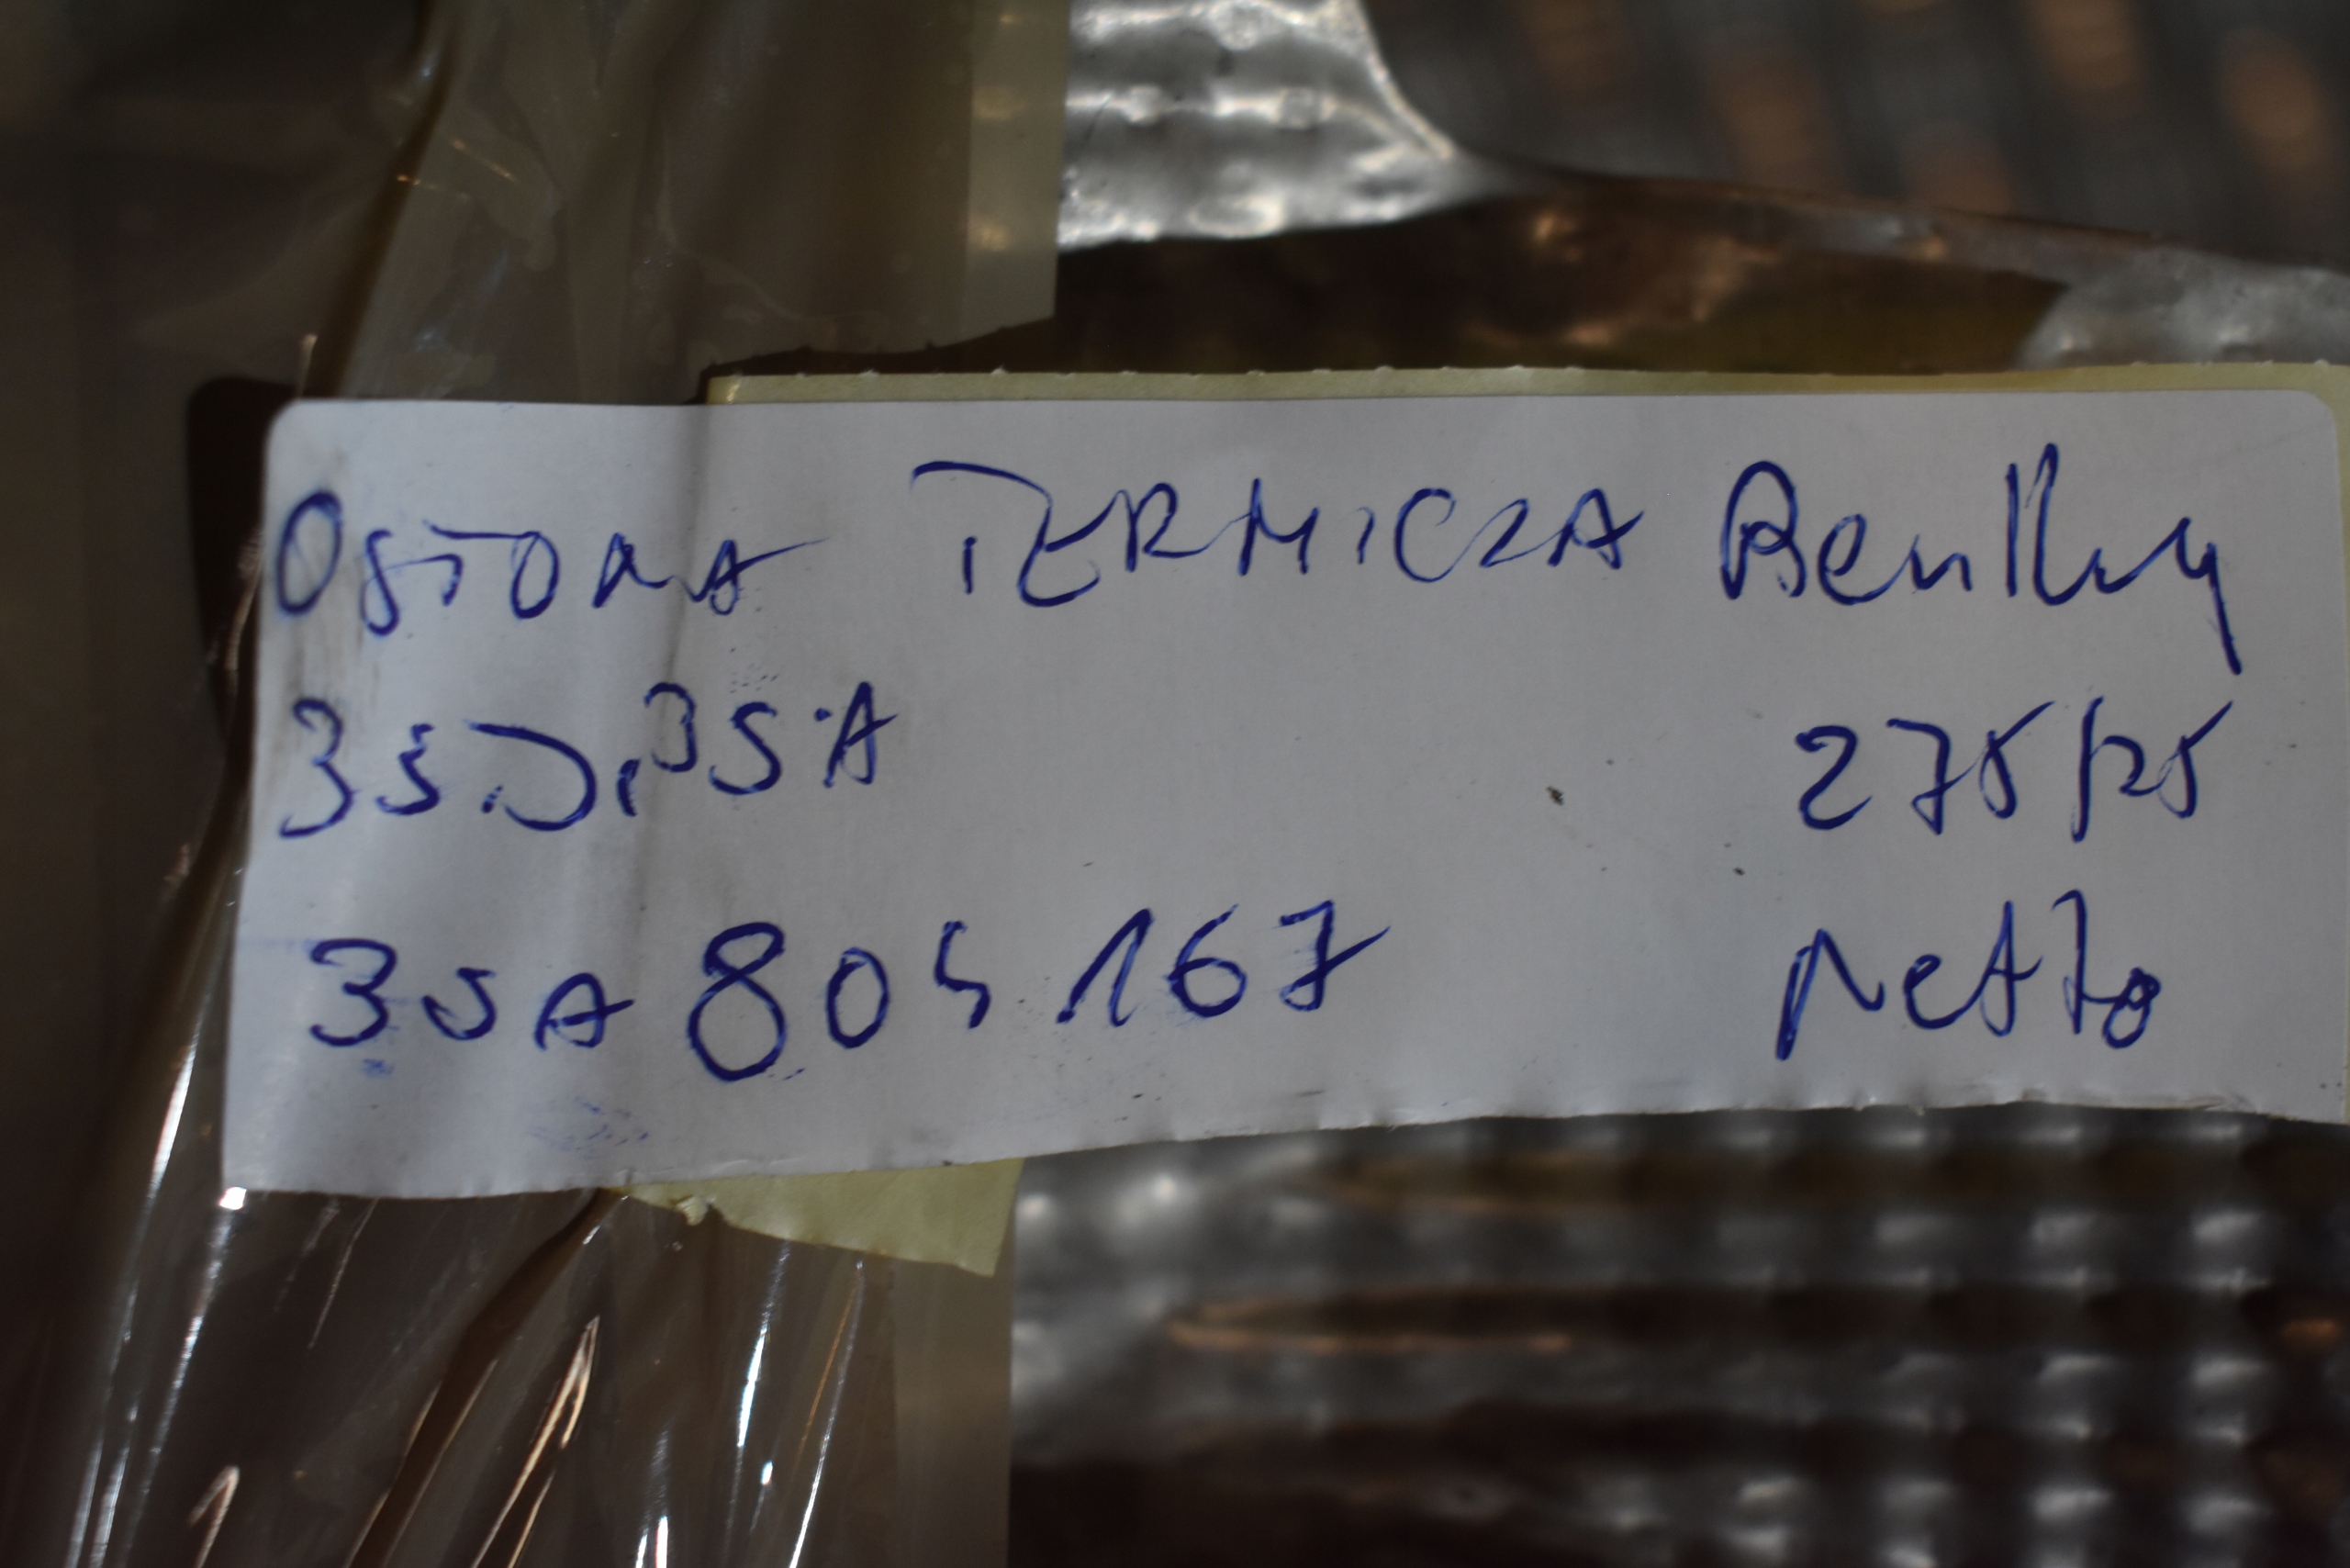 OSŁONA TERMICZA Bentley
3SD, 3SA 275/25
3SA 804 167 Netto